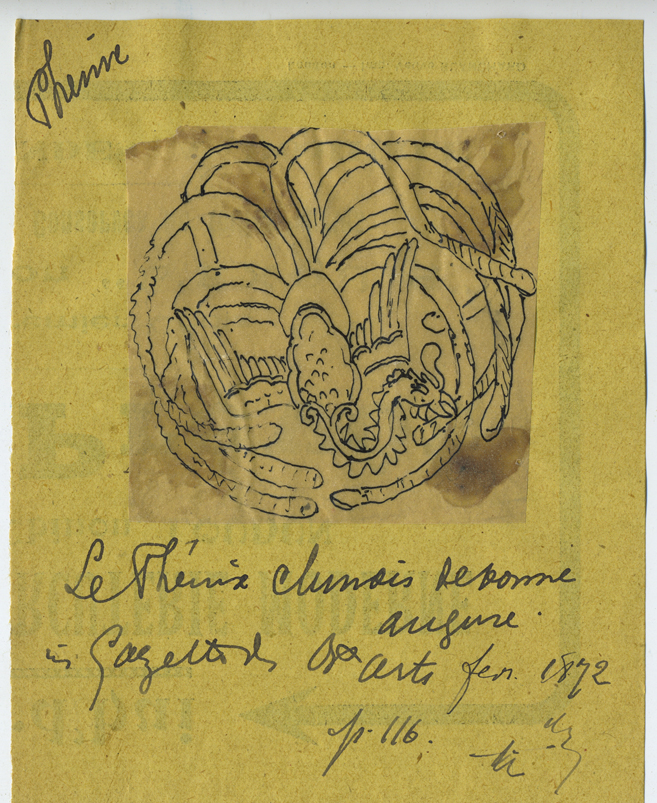 Phenix
Le Phénix chinois de bonne
augure.
in Gazette des Bx arts fev. 1872
p. 116.